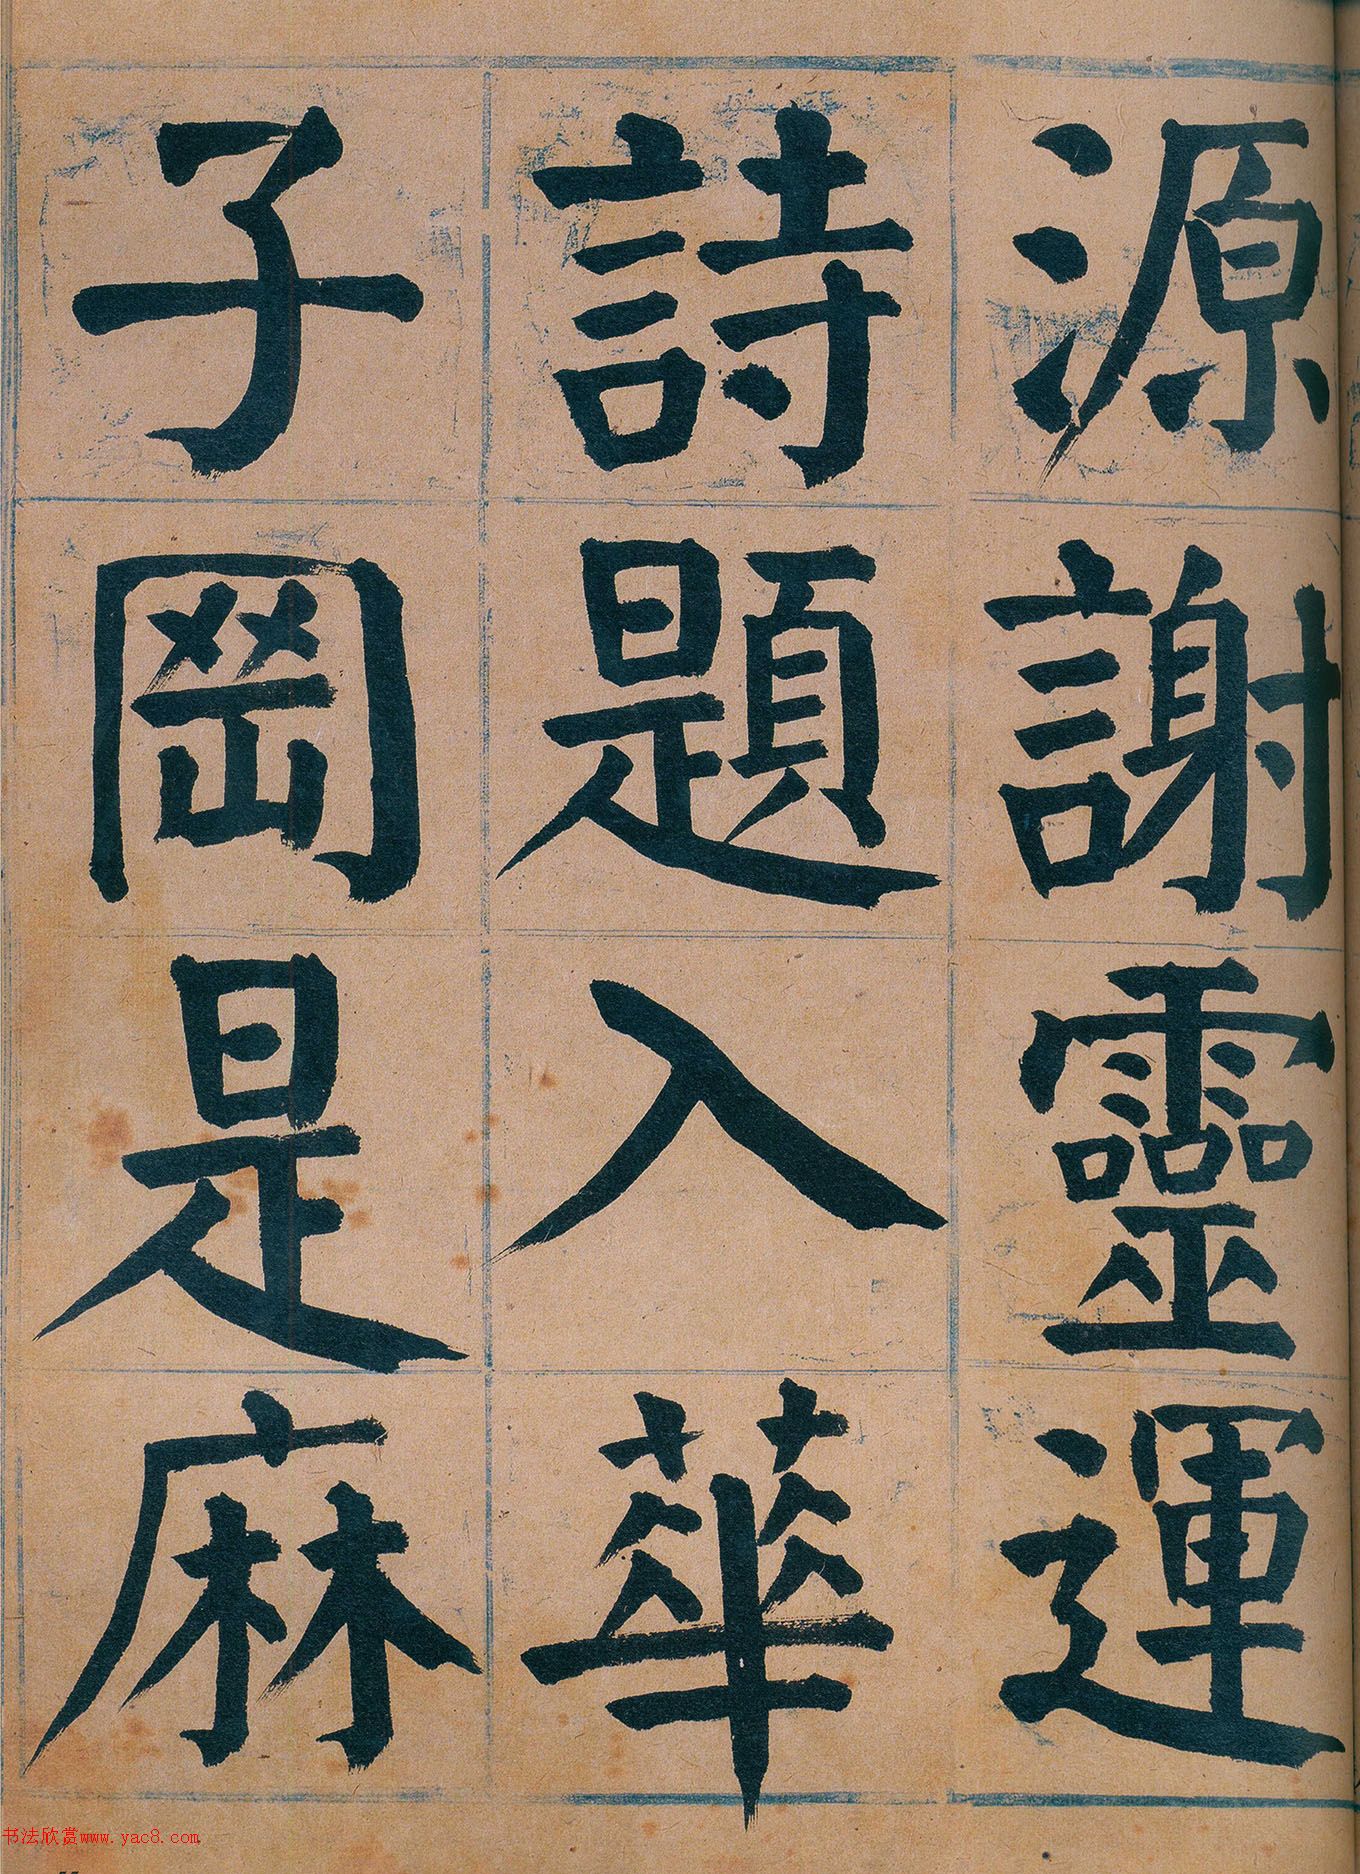 源謝靈運
詩題入華
子岡是麻
书法欣赏www.yac8.com